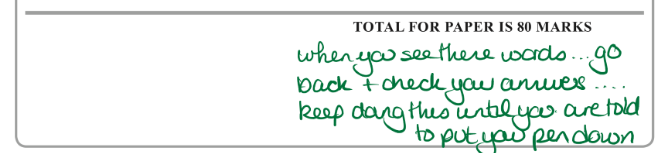 TOTAL FOR PAPER IS 80 MARKS
when you see these words...go
back + check your answers ....
keep doing this until you are told
to put your pen down